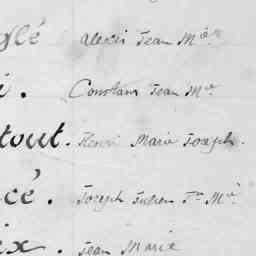 glé Alexis Jean Mie
i. Constant Jean Mie
tout. Henri Marie Joseph.
cé. Joseph Julien Fs Mie
ix. Jean Marie